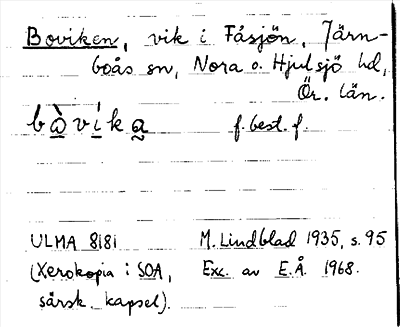 Boviken, vik i Fåsjön, Järn-
boås sn, Nora o. Hjulsjö hd,
Ör. län.
bòvíka f. best. f.
ULMA 8181 M. Lindblad 1935, s. 95
(Xerokopia i SOA, Exc. av E.Å. 1968.
särsk. kapsel).